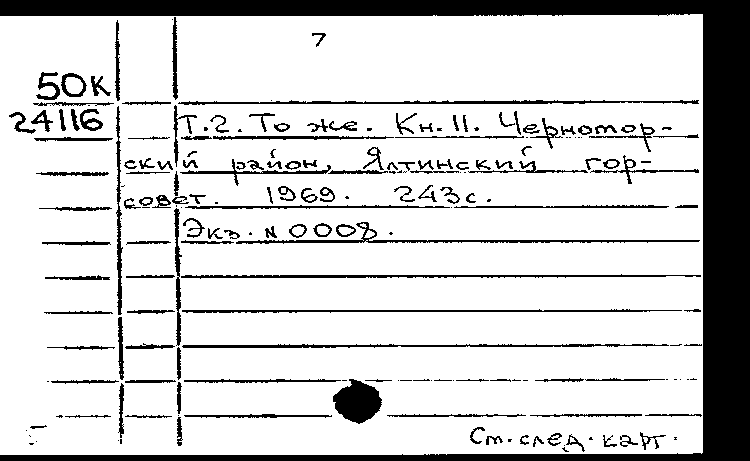 7
50К
24116
Т.2. То же. Кн. II. Черномор-
ский район, Ялтинский гор-
совет. 1969. 243 с.
Экз. N 0008.
См. след. карт.